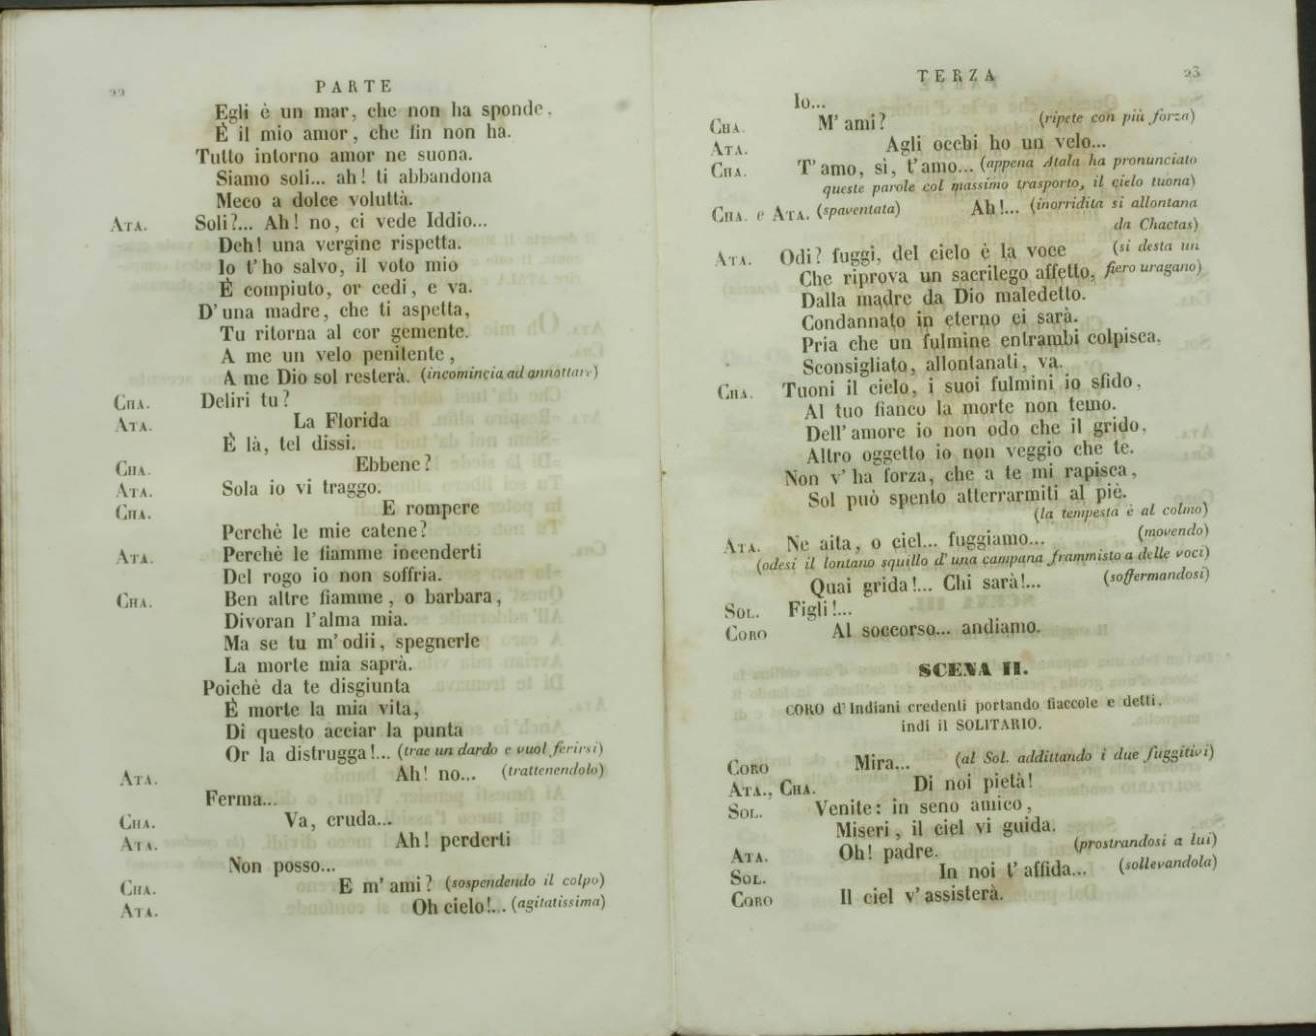 22
PARTE
Egli è un mar, che non ha sponde,
È il mio amor, che fin non ha.
Tutto intorno amor ne suona.
Siamo soli... ah! ti abbandona
Meco a dolce voluttà.
ATA. Soli?... Ah! no, ci vede Iddio...
Deh! una vergine rispetta.
Io t'ho salvo, il voto mio
È compiuto, or cedi, e va.
D'una madre, che ti aspetta,
Tu ritorna al cor gemente.
A me un velo penitente,
A me Dio sol resterà. (incomincia ad annottare)
CHA. Deliri tu?
ATA. La Florida
È là, tel dissi.
CHA. Ebbene?
ATA. Sola io vi traggo.
CHA. E rompere
Perchè le mie catene?
ATA. Perchè le fiamme incenderti
Del rogo io non soffria.
CHA. Ben altre fiamme, o barbara,
Divoran l'alma mia.
Ma se tu m'odii, spegnerle
La morte mia saprà.
Poichè da te disgiunta
È morte la mia vita,
Di questo acciar la punta
Or la distrugga!... (trae un dardo e vuol ferirsi)
ATA. Ah! no... (trattenendolo)
Ferma...
CHA. Va, cruda...
ATA. Ah! perderti
Non posso...
CHA. E m'ami? (sospendendo il colpo)
ATA. Oh cielo!... (agitatissima)
TERZA
23
Io...
CHA. M'ami? (ripete con più forza)
ATA. Agli occhi ho un velo...
CHA. T'amo, sì, t'amo... (appena Atala ha pronunciato
queste parole col massimo trasporto, il cielo tuona)
CHA. e ATA. (spaventata) Ah!... (inorridita si allontana
da Chactas)
ATA. Odi? fuggi, del cielo è la voce (si desta un
Che riprova un sacrilego affetto, fiero uragano)
Dalla madre da Dio maledetto.
Condannato in eterno ei sarà.
Pria che un fulmine entrambi colpisca,
Sconsigliato, allontanati, va.
CHA. Tuoni il cielo, i suoi fulmini io sfido,
Al tuo fianco la morte non temo.
Dell'amore io non odo che il grido,
Altro oggetto io non veggio che te.
Non v'ha forza, che a te mi rapisca,
Sol può spento atterrarmiti al piè.
(la tempesta è al colmo)
ATA. Ne aita, o ciel... fuggiamo... (movendo)
(odesi il lontano squillo d'una campana frammisto a delle voci)
Quai grida!... Chi sarà!... (soffermandosi)
SOL. Figli!...
CORO Al soccorso... andiamo.
SCENA II.
CORO d'Indiani credenti portando fiaccole e detti,
indi il SOLITARIO.
CORO Mira... (al Sol. addittando i due fuggitivi)
ATA., CHA. Di noi pietà!
SOL. Venite: in seno amico,
Miseri, il ciel vi guida.
ATA. Oh! padre. (prostrandosi a lui)
SOL. In noi t'affida... (sollevandola)
CORO Il ciel v'assisterà.